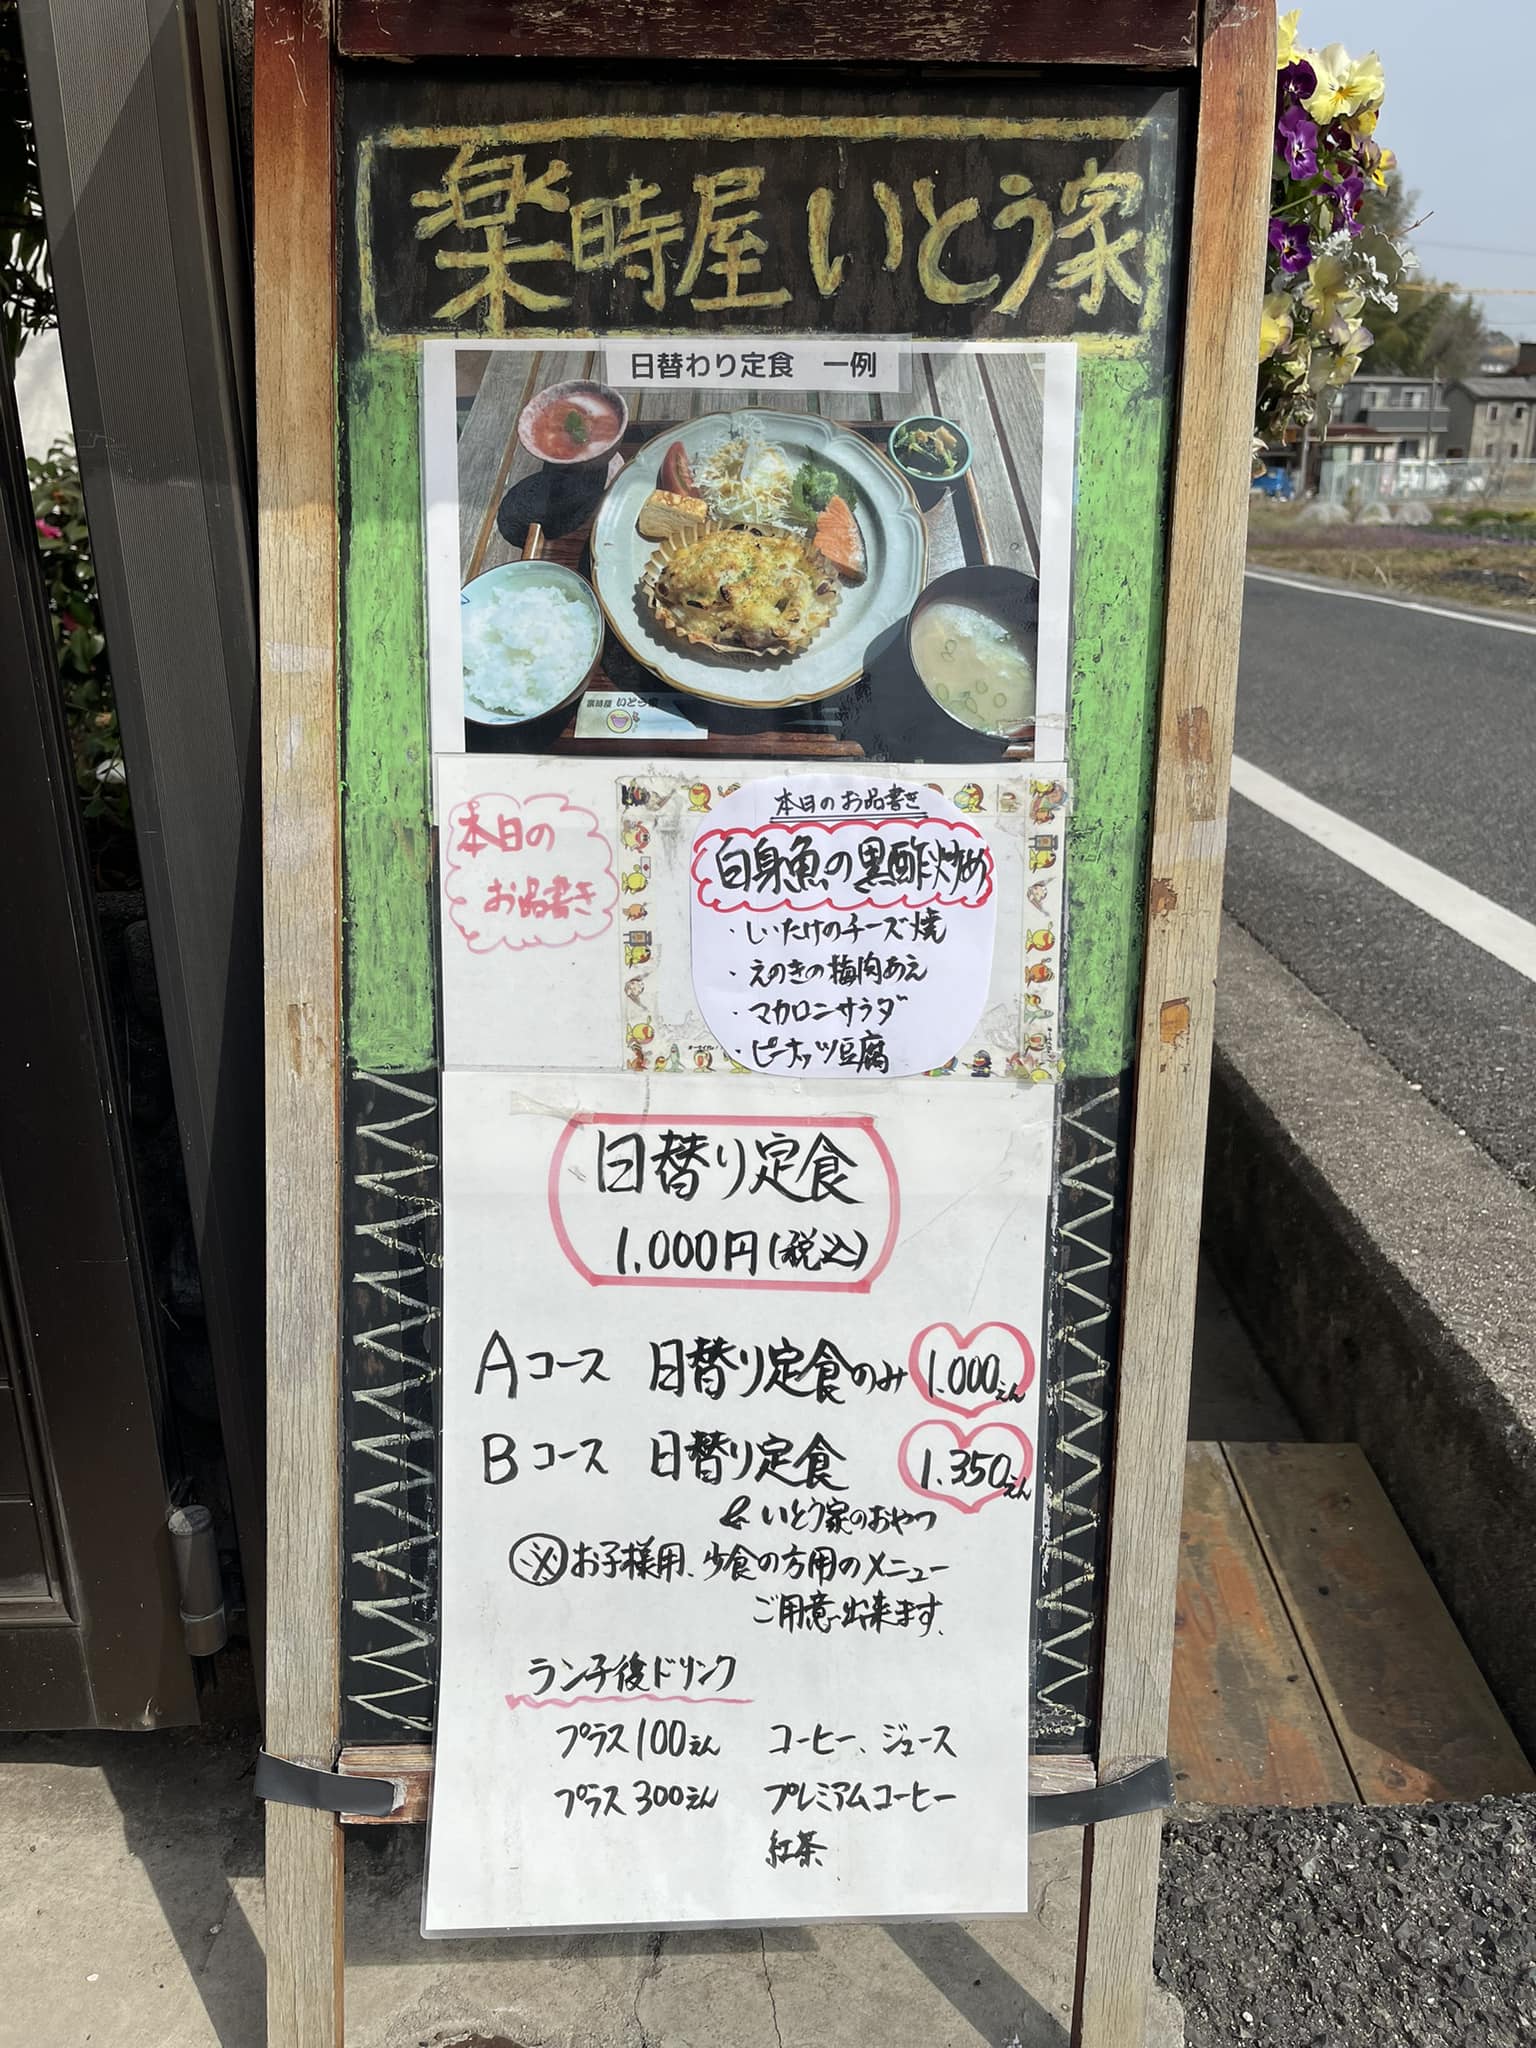 楽時屋 いとう家
日替わり定食 一例
楽時屋 いとう家
本日の
お品書き
本日のお品書き
白身魚の黒酢炒め
・しいたけのチーズ焼
・えのきの梅肉あえ
・マカロニサラダ
・ピーナッツ豆腐
日替り定食
1.000円(税込)
Aコース 日替り定食のみ 1.000えん
Bコース 日替り定食 1.350えん
& いとう家のおやつ
※お子様用、少食の方用のメニュー
ご用意出来ます。
ランチ後ドリンク
プラス100えん コーヒー、ジュース
プラス300えん プレミアムコーヒー
紅茶